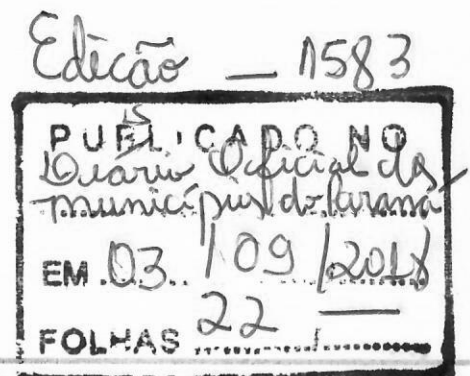 Edicão — 1583
PUBLICADO NO
Diário Oficial dos
municípios do Paraná
EM 03 / 09 / 2018
FOLHAS 22 / —